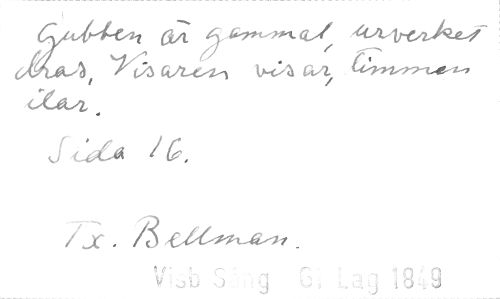 Gubben är gammal, urverket
dras, Visaren visar, timmen
ilar.
Sida 16.
Tx. Bellman.
Visb Sång Gl Lag 1849